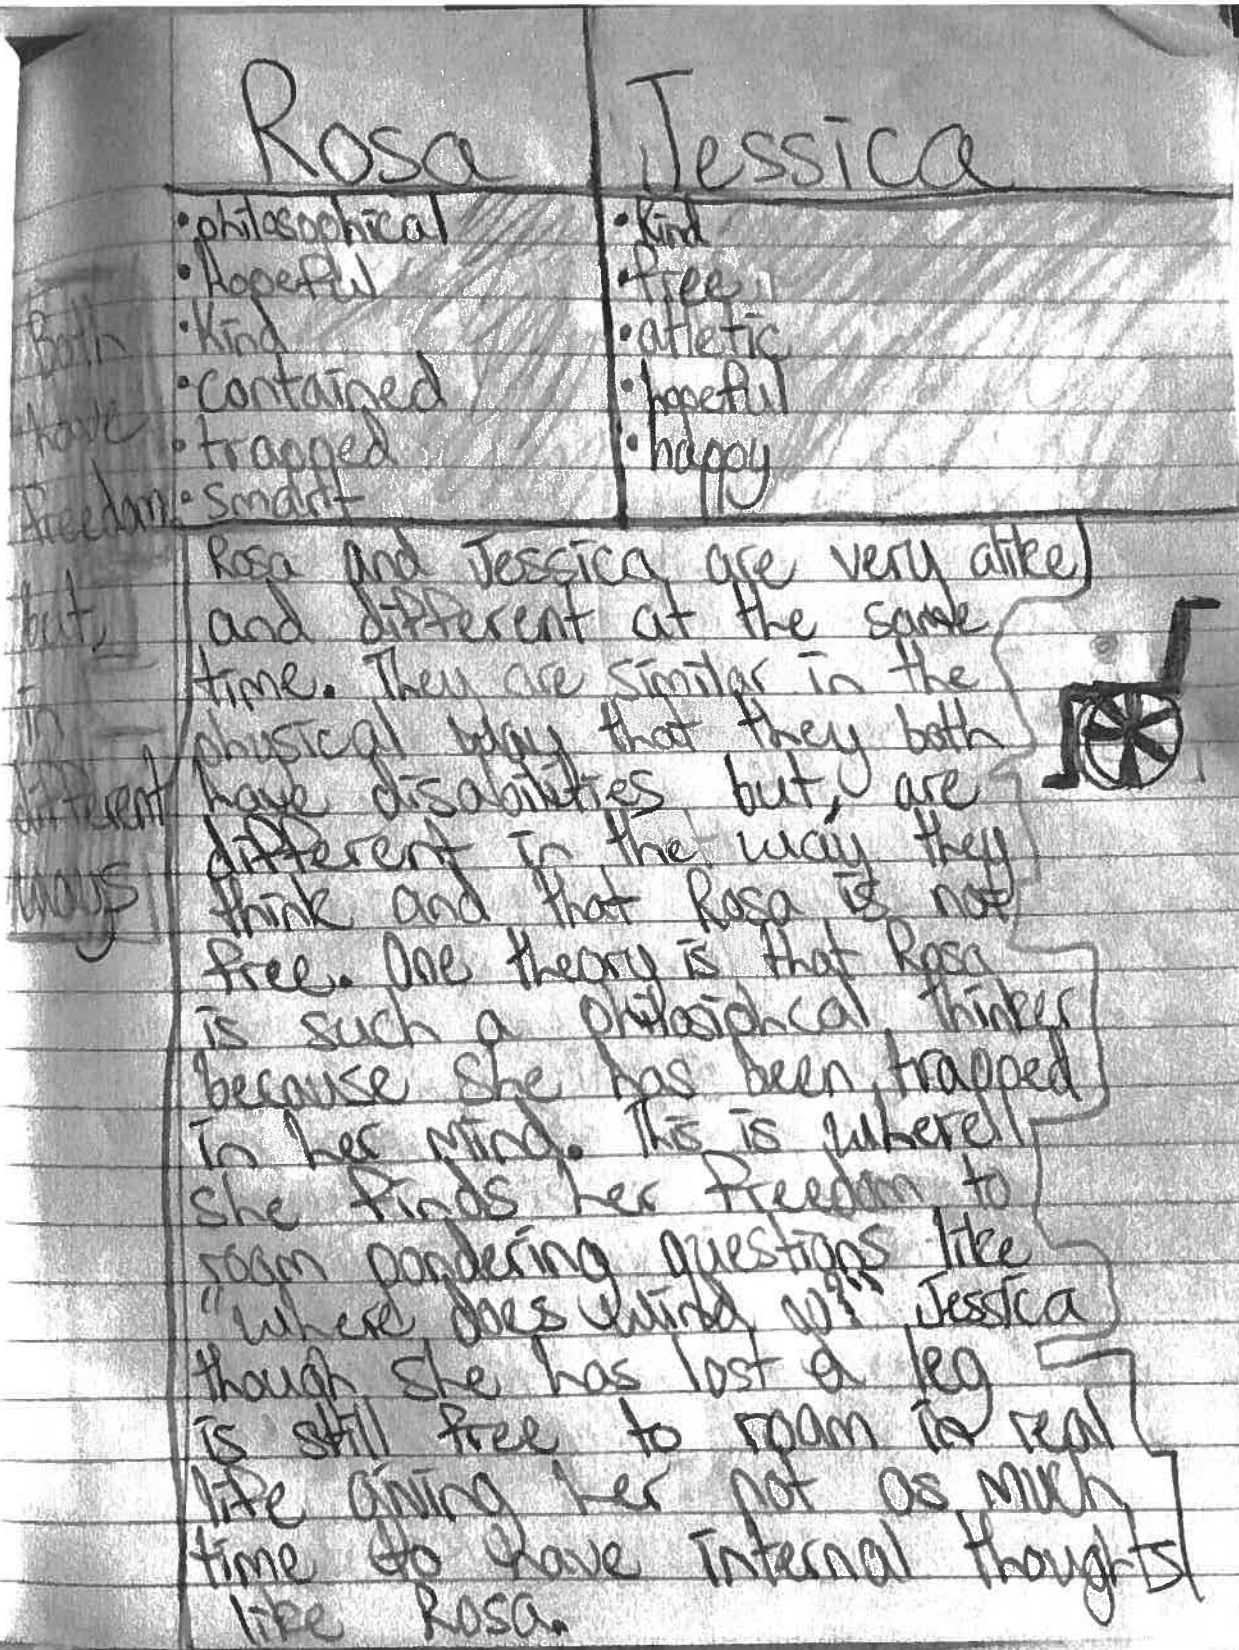 Rosa
Jessica
• philosophical
• Hopeful
• Kind
• contained
• trapped
• smart
• Kind
• free
• atletic
• hopeful
• happy
Both
have
freedom
but,
in
different
ways
Rosa and Jessica are very alike
and different at the same
time. They are similar in the
physical way that they both
have disabilities but, are
different in the way they
think and that Rosa is not
free. One theory is that Rosa
is such a philosiphcal thinker
because she has been trapped
in her mind. This is where
she finds her freedom to
roam pondering questions like
"where does wind go?" Jessica
though she has lost a leg
is still free to roam in real
life giving her not as much
time to have internal thoughts
like Rosa.